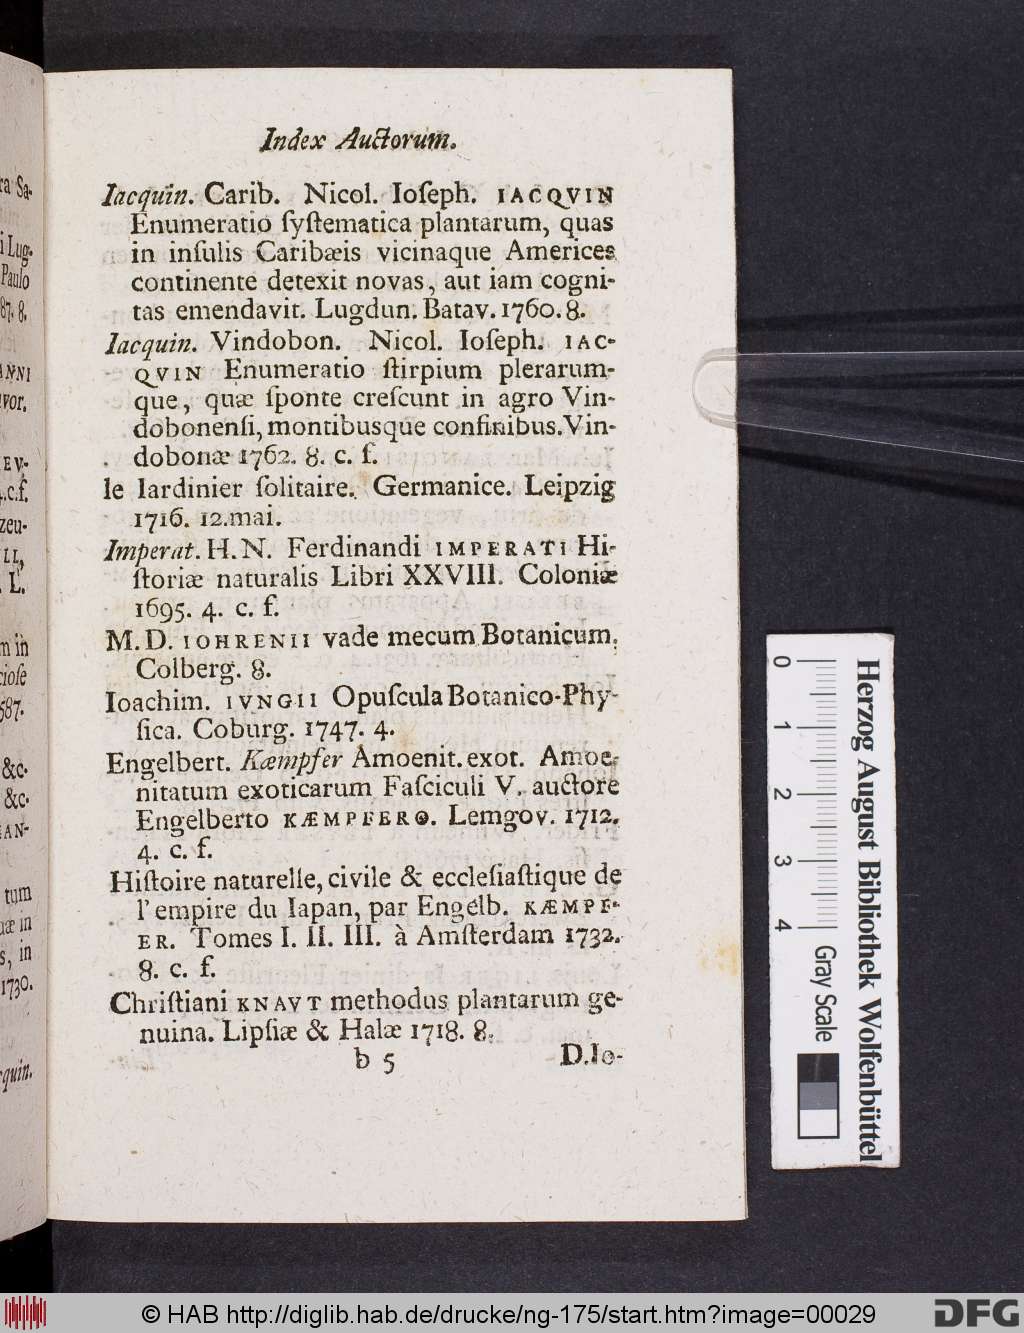 Index Auctorum.
Iacquin. Carib. Nicol. Ioſeph. IACQVIN
Enumeratio ſyſtematica plantarum, quas
in inſulis Caribæis vicinaque Americes
continente detexit novas, aut iam cogni-
tas emendavit. Lugdun. Batav. 1760. 8.
Iacquin. Vindobon. Nicol. Ioſeph. IAC-
QVIN Enumeratio ſtirpium plerarum-
que, quæ ſponte creſcunt in agro Vin-
dobonenſi, montibusque confinibus. Vin-
dobonæ 1762. 8. c. f.
le Iardinier ſolitaire. Germanice. Leipzig
1716. 12.mai.
Imperat. H. N. Ferdinandi IMPERATI Hi-
ſtoriæ naturalis Libri XXVIII. Coloniæ
1695. 4. c. f.
M. D. IOHRENII vade mecum Botanicum.
Colberg. 8.
Ioachim. IVNGII Opuſcula Botanico-Phy-
ſica. Coburg. 1747. 4.
Engelbert. Kæmpfer Amoenit. exot. Amoe-
nitatum exoticarum Faſciculi V. auctore
Engelberto KÆMPFERO. Lemgov. 1712.
4. c. f.
Hiſtoire naturelle, civile & eccleſiaſtique de
l'empire du Iapan, par Engelb. KÆMPF-
ER. Tomes I. II. III. à Amſterdam 1732.
8. c. f.
Chriſtiani KNAVT methodus plantarum ge-
nuina. Lipſiæ & Halæ 1718. 8.
b 5 D.Io-
ra Sa-
i Lug-
Paulo
87. 8.
ANNI
vor.
EV-
.c.f.
zeu-
LL,
. L.
m in
cioſe
587.
&c.
&c.
AN-
tum
uæ in
s, in
1730.
cquin.
0 1 2 3 4
Gray Scale
Herzog August Bibliothek Wolfenbüttel
© HAB http://diglib.hab.de/drucke/ng-175/start.htm?image=00029
DFG